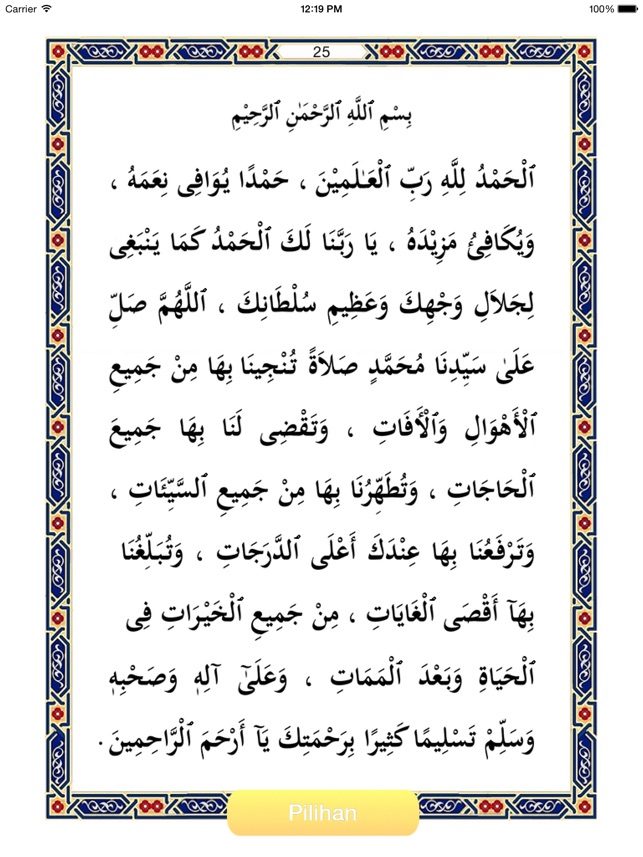 Carrier 12:19 PM 100%
25
بِسْمِ ٱللَّهِ ٱلرَّحْمَـٰنِ ٱلرَّحِيْمِ
ٱلْحَمْدُ لِلَّهِ رَبِّ ٱلْعَـٰلَمِيْنَ ، حَمْدًا يُوَافِى نِعَمَهُ ،
وَيُكَافِئُ مَزِيْدَهُ ، يَا رَبَّنَا لَكَ ٱلْحَمْدُ كَمَا يَنْبَغِى
لِجَلاَلِ وَجْهِكَ وَعَظِيمِ سُلْطَانِكَ ، ٱللَّهُمَّ صَلِّ
عَلَىٰ سَيِّدِنَا مُحَمَّدٍ صَلاَةً تُنْجِينَا بِهَا مِنْ جَمِيعِ
ٱلْأَهْوَالِ وَٱلْأَفَاتِ ، وَتَقْضِى لَنَا بِهَا جَمِيعَ
ٱلْحَاجَاتِ ، وَتُطَهِّرُنَا بِهَا مِنْ جَمِيعِ ٱلسَّيِّئَاتِ ،
وَتَرْفَعُنَا بِهَا عِنْدَكَ أَعْلَى ٱلدَّرَجَاتِ ، وَتُبَلِّغُنَا
بِهَآ أَقْصَى ٱلْغَايَاتِ ، مِنْ جَمِيعِ ٱلْخَيْرَاتِ فِى
ٱلْحَيَاةِ وَبَعْدَ ٱلْمَمَاتِ ، وَعَلَىٰٓ آلِهِ وَصَحْبِهِ
وَسَلِّمْ تَسْلِيمًا كَثِيرًا بِرَحْمَتِكَ يَآ أَرْحَمَ ٱلْرَّاحِمِينَ .
Pilihan